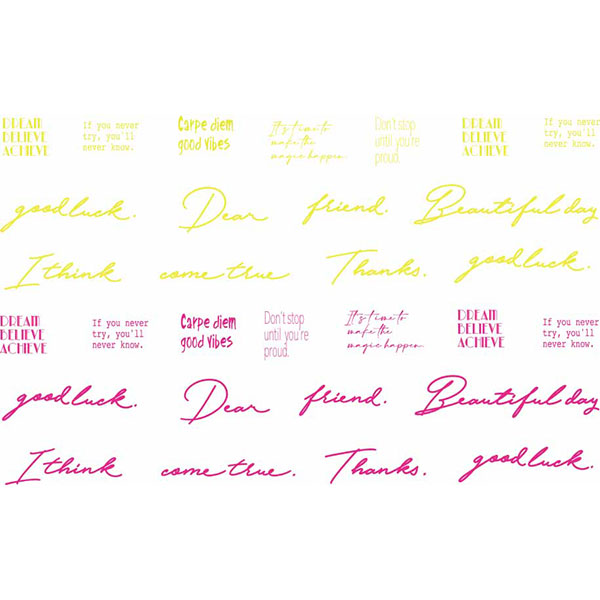 DREAM
BELIEVE
ACHIEVE
If you never
try, you'll
never know.
Carpe diem
good vibes
It's time to
make the
magic happen.
Don't stop
until you're
proud.
DREAM
BELIEVE
ACHIEVE
If you never
try, you'll
never know.
good luck. Dear friend. Beautiful day
I think come true. Thanks. good luck.
DREAM
BELIEVE
ACHIEVE
If you never
try, you'll
never know.
Carpe diem
good vibes
Don't stop
until you're
proud.
It's time to
make the
magic happen.
DREAM
BELIEVE
ACHIEVE
If you never
try, you'll
never know.
good luck. Dear friend. Beautiful day
I think come true. Thanks. good luck.